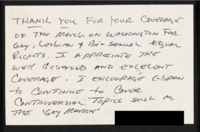 THANK YOU FOR YOUR COVERAGE
OF THE MARCH ON WASHINGTON FOR
GAY, LESBIAN & BI-SEXUAL EQUAL
RIGHTS. I APPRECIATE THE
WELL DESERVED AND EXCELLENT
COVERAGE. I ENCOURAGE C-SPAN
TO CONTINUE TO COVER
CONTROVERSIAL TOPICS SUCH AS
THE "GAY MARCH"